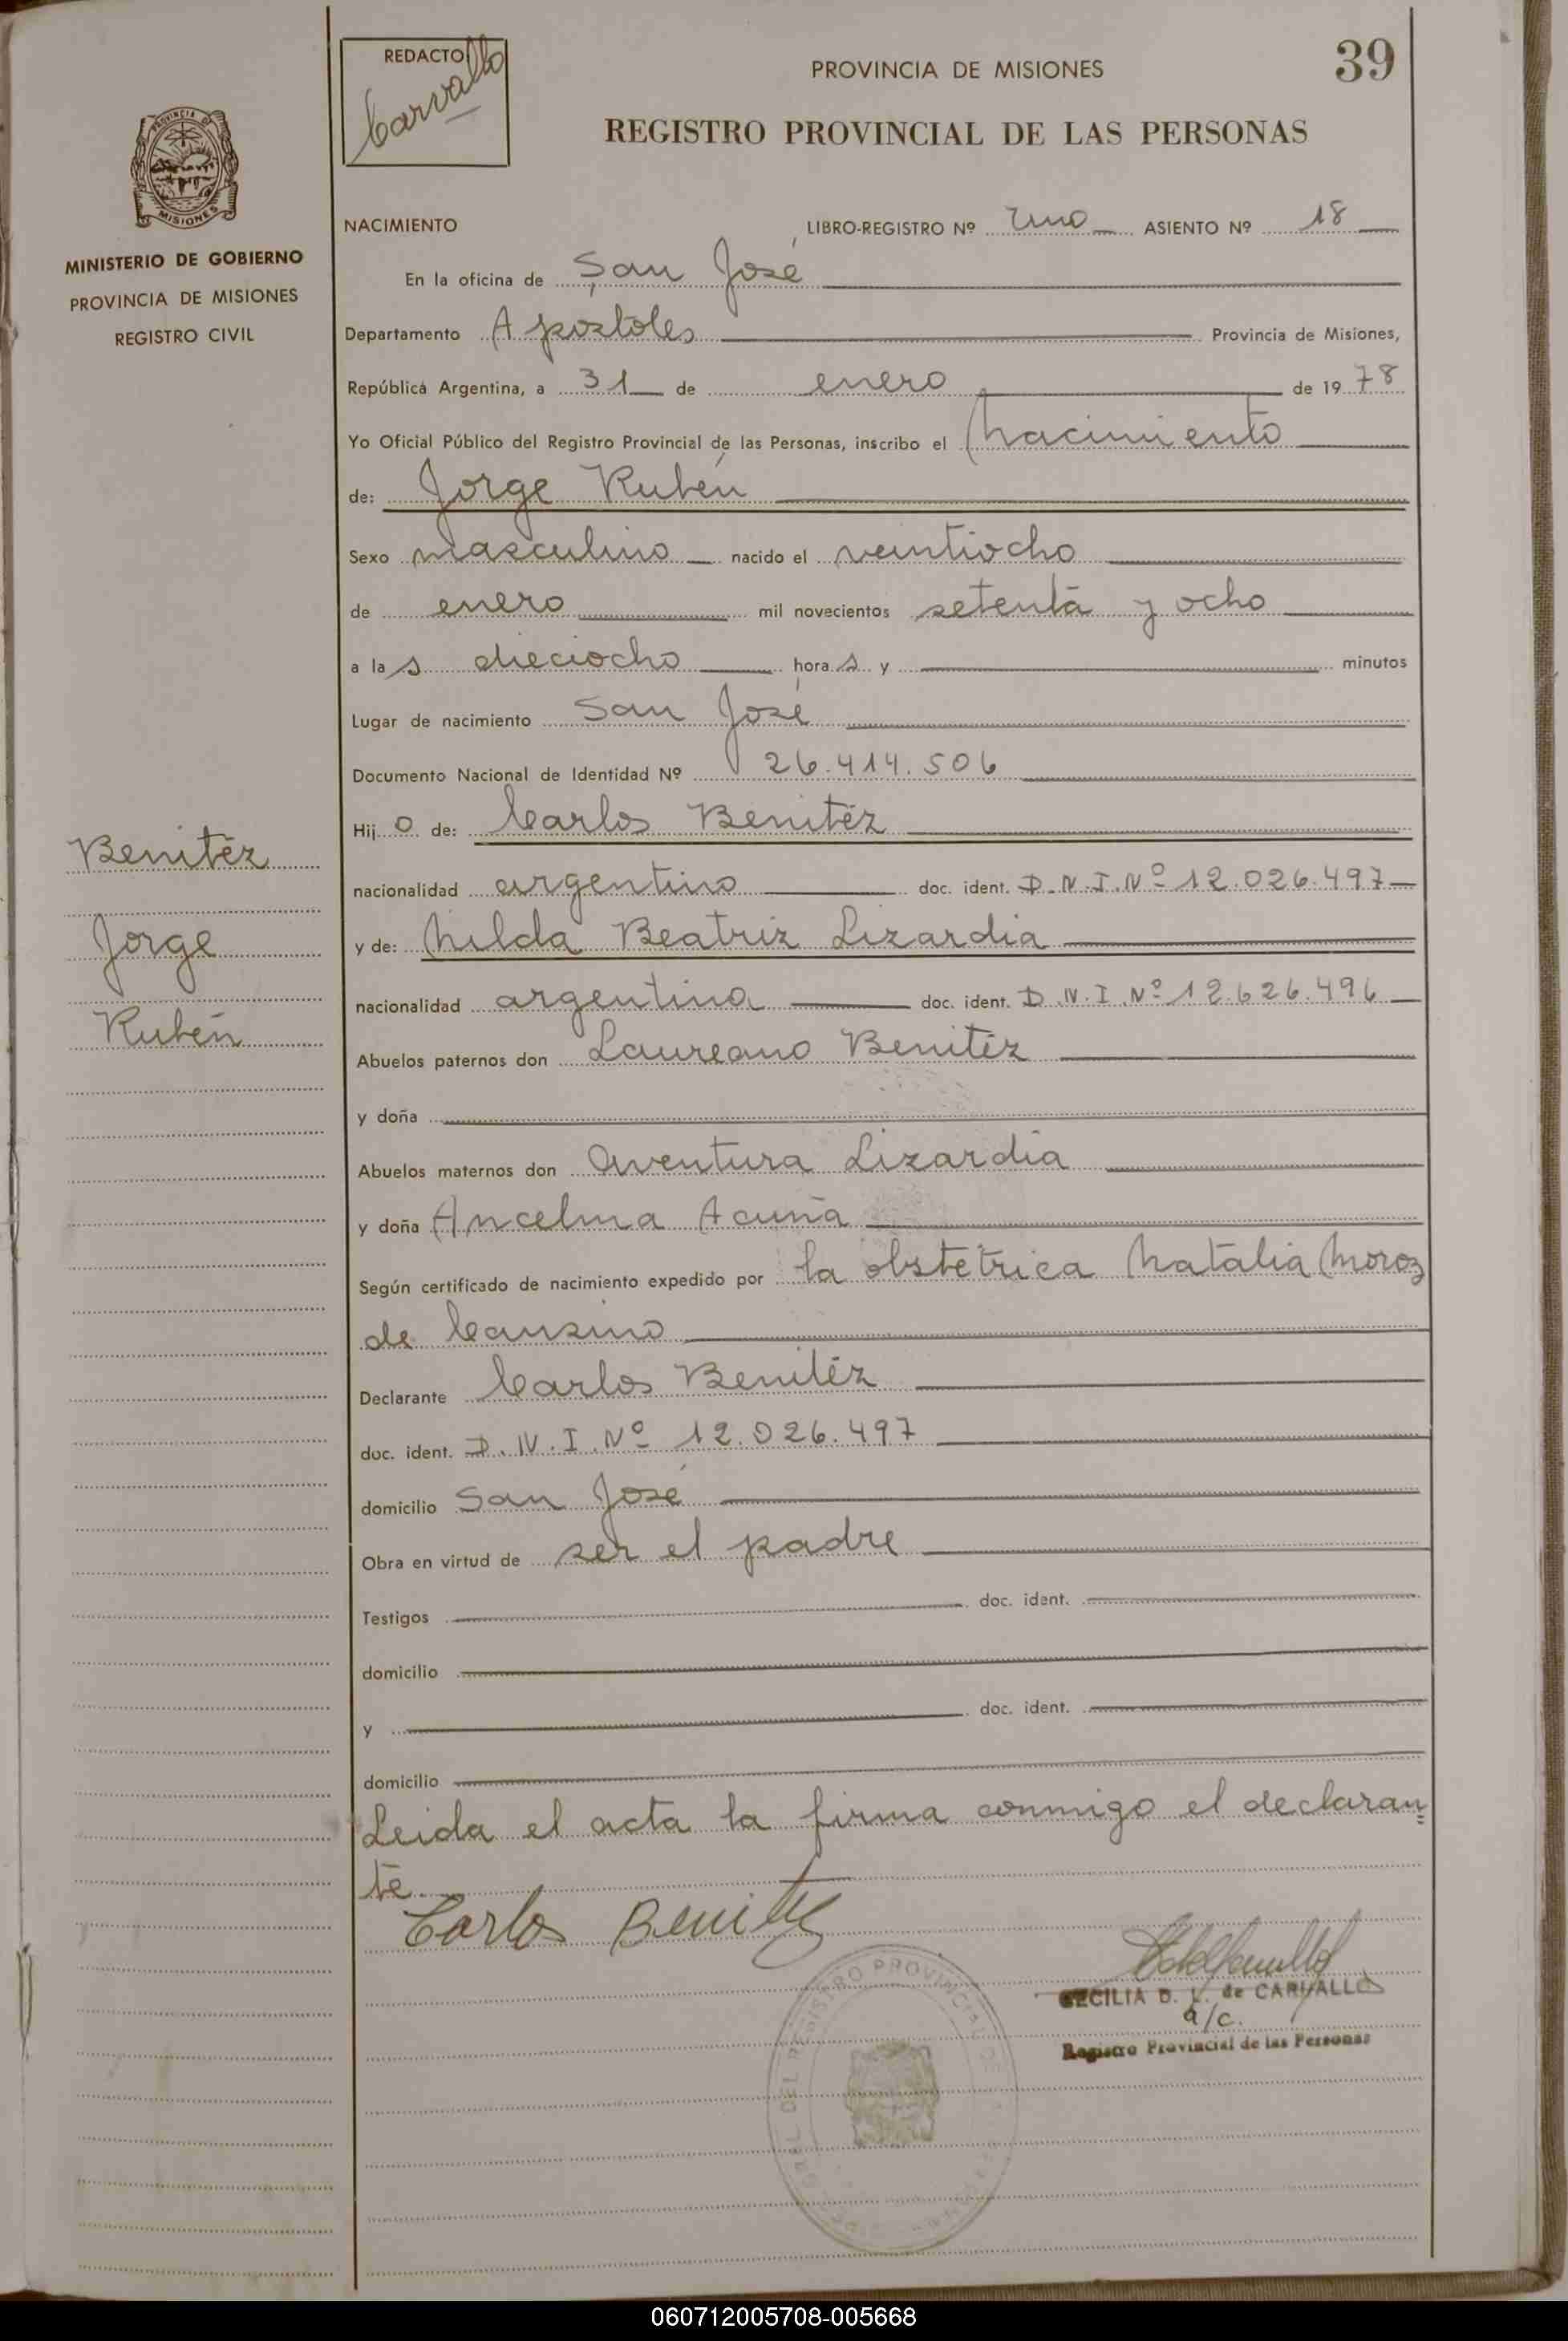 39
REDACTO
Carvallo
PROVINCIA DE MISIONES
REGISTRO PROVINCIAL DE LAS PERSONAS
PROVINCIA DE
MISIONES
MINISTERIO DE GOBIERNO
PROVINCIA DE MISIONES
REGISTRO CIVIL
NACIMIENTO LIBRO-REGISTRO Nº Uno ASIENTO Nº 18
En la oficina de San José
Departamento Apostoles Provincia de Misiones,
República Argentina, a 31 de enero de 1978
Yo Oficial Público del Registro Provincial de las Personas, inscribo el Nacimiento
de: Jorge Rubén
Sexo masculino nacido el veintiocho
de enero mil novecientos setenta y ocho
a las dieciocho horas y minutos
Lugar de nacimiento San José
Documento Nacional de Identidad Nº 26.414.506
Hijo de: Carlos Benitéz
Benitéz
Jorge
Rubén
nacionalidad argentino doc. ident. D.N.I.Nº 12.026.497
y de: Nilda Beatriz Lizardia
nacionalidad argentina doc. ident. D.N.I.Nº 12.626.496
Abuelos paternos don Laureano Benitéz
y doña
Abuelos maternos don Aventura Lizardia
y doña Ancelma Acuña
Según certificado de nacimiento expedido por la obstetrica Natalia Moroz
de Cansino
Declarante Carlos Benitéz
doc. ident. D.N.I.Nº 12.026.497
domicilio San José
Obra en virtud de ser el padre
Testigos doc. ident.
domicilio
y doc. ident.
domicilio
Leida el acta la firma conmigo el declaran=
te.
Carlos Benitez
CECILIA D. L. de CARVALLO
a/c.
Registro Provincial de las Personas
DEL REGISTRO PROVINCIAL DE
060712005708-005668